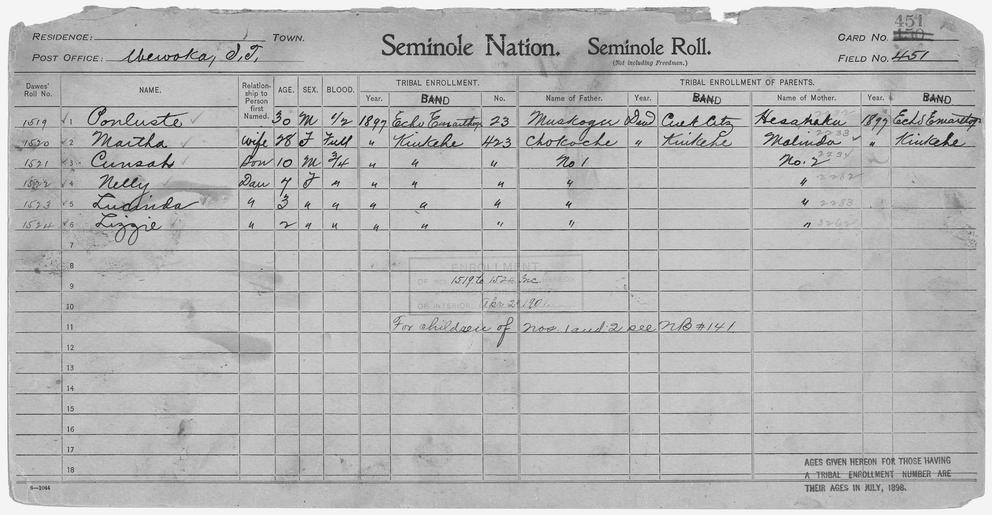 451
RESIDENCE: TOWN. Seminole Nation. Seminole Roll. CARD NO. 450
POST OFFICE: Wewoka, I.T. (Not including Freedmen.) FIELD NO. 451
Dawes' Roll No. NAME. Relationship to Person first Named. AGE. SEX. BLOOD. TRIBAL ENROLLMENT. TRIBAL ENROLLMENT OF PARENTS.
Year. BAND No. Name of Father. Year. BAND Name of Mother. Year. BAND
1519 1 Ponluste 30 M 1/2 1897 Echo Emarthoge 23 Muskogee Ded Creek Citz Hesahake 1897 Echo Emarthoge
1520 2 Martha Wife 28 F Full " Kinkehe 423 Chokoche " Kinkehe Malinda " Kinkehe
1521 3 Cunsah Son 10 M 3/4 " " " No 1 No. 2
1522 4 Nelly Dau 7 F " " " " " "
1523 5 Lucinda " 3 " " " " " " "
1524 6 Lizzie " 2 " " " " " " "
7
8
ENROLLMENT
9 1519 to 1524 Inc
10 OF INTERIOR Apr 2 1901
11 For children of Nos. 1 and 2 see NB #141
12
13
14
15
16
17
18
AGES GIVEN HEREON FOR THOSE HAVING
A TRIBAL ENROLLMENT NUMBER ARE
THEIR AGES IN JULY, 1898.
6—2044